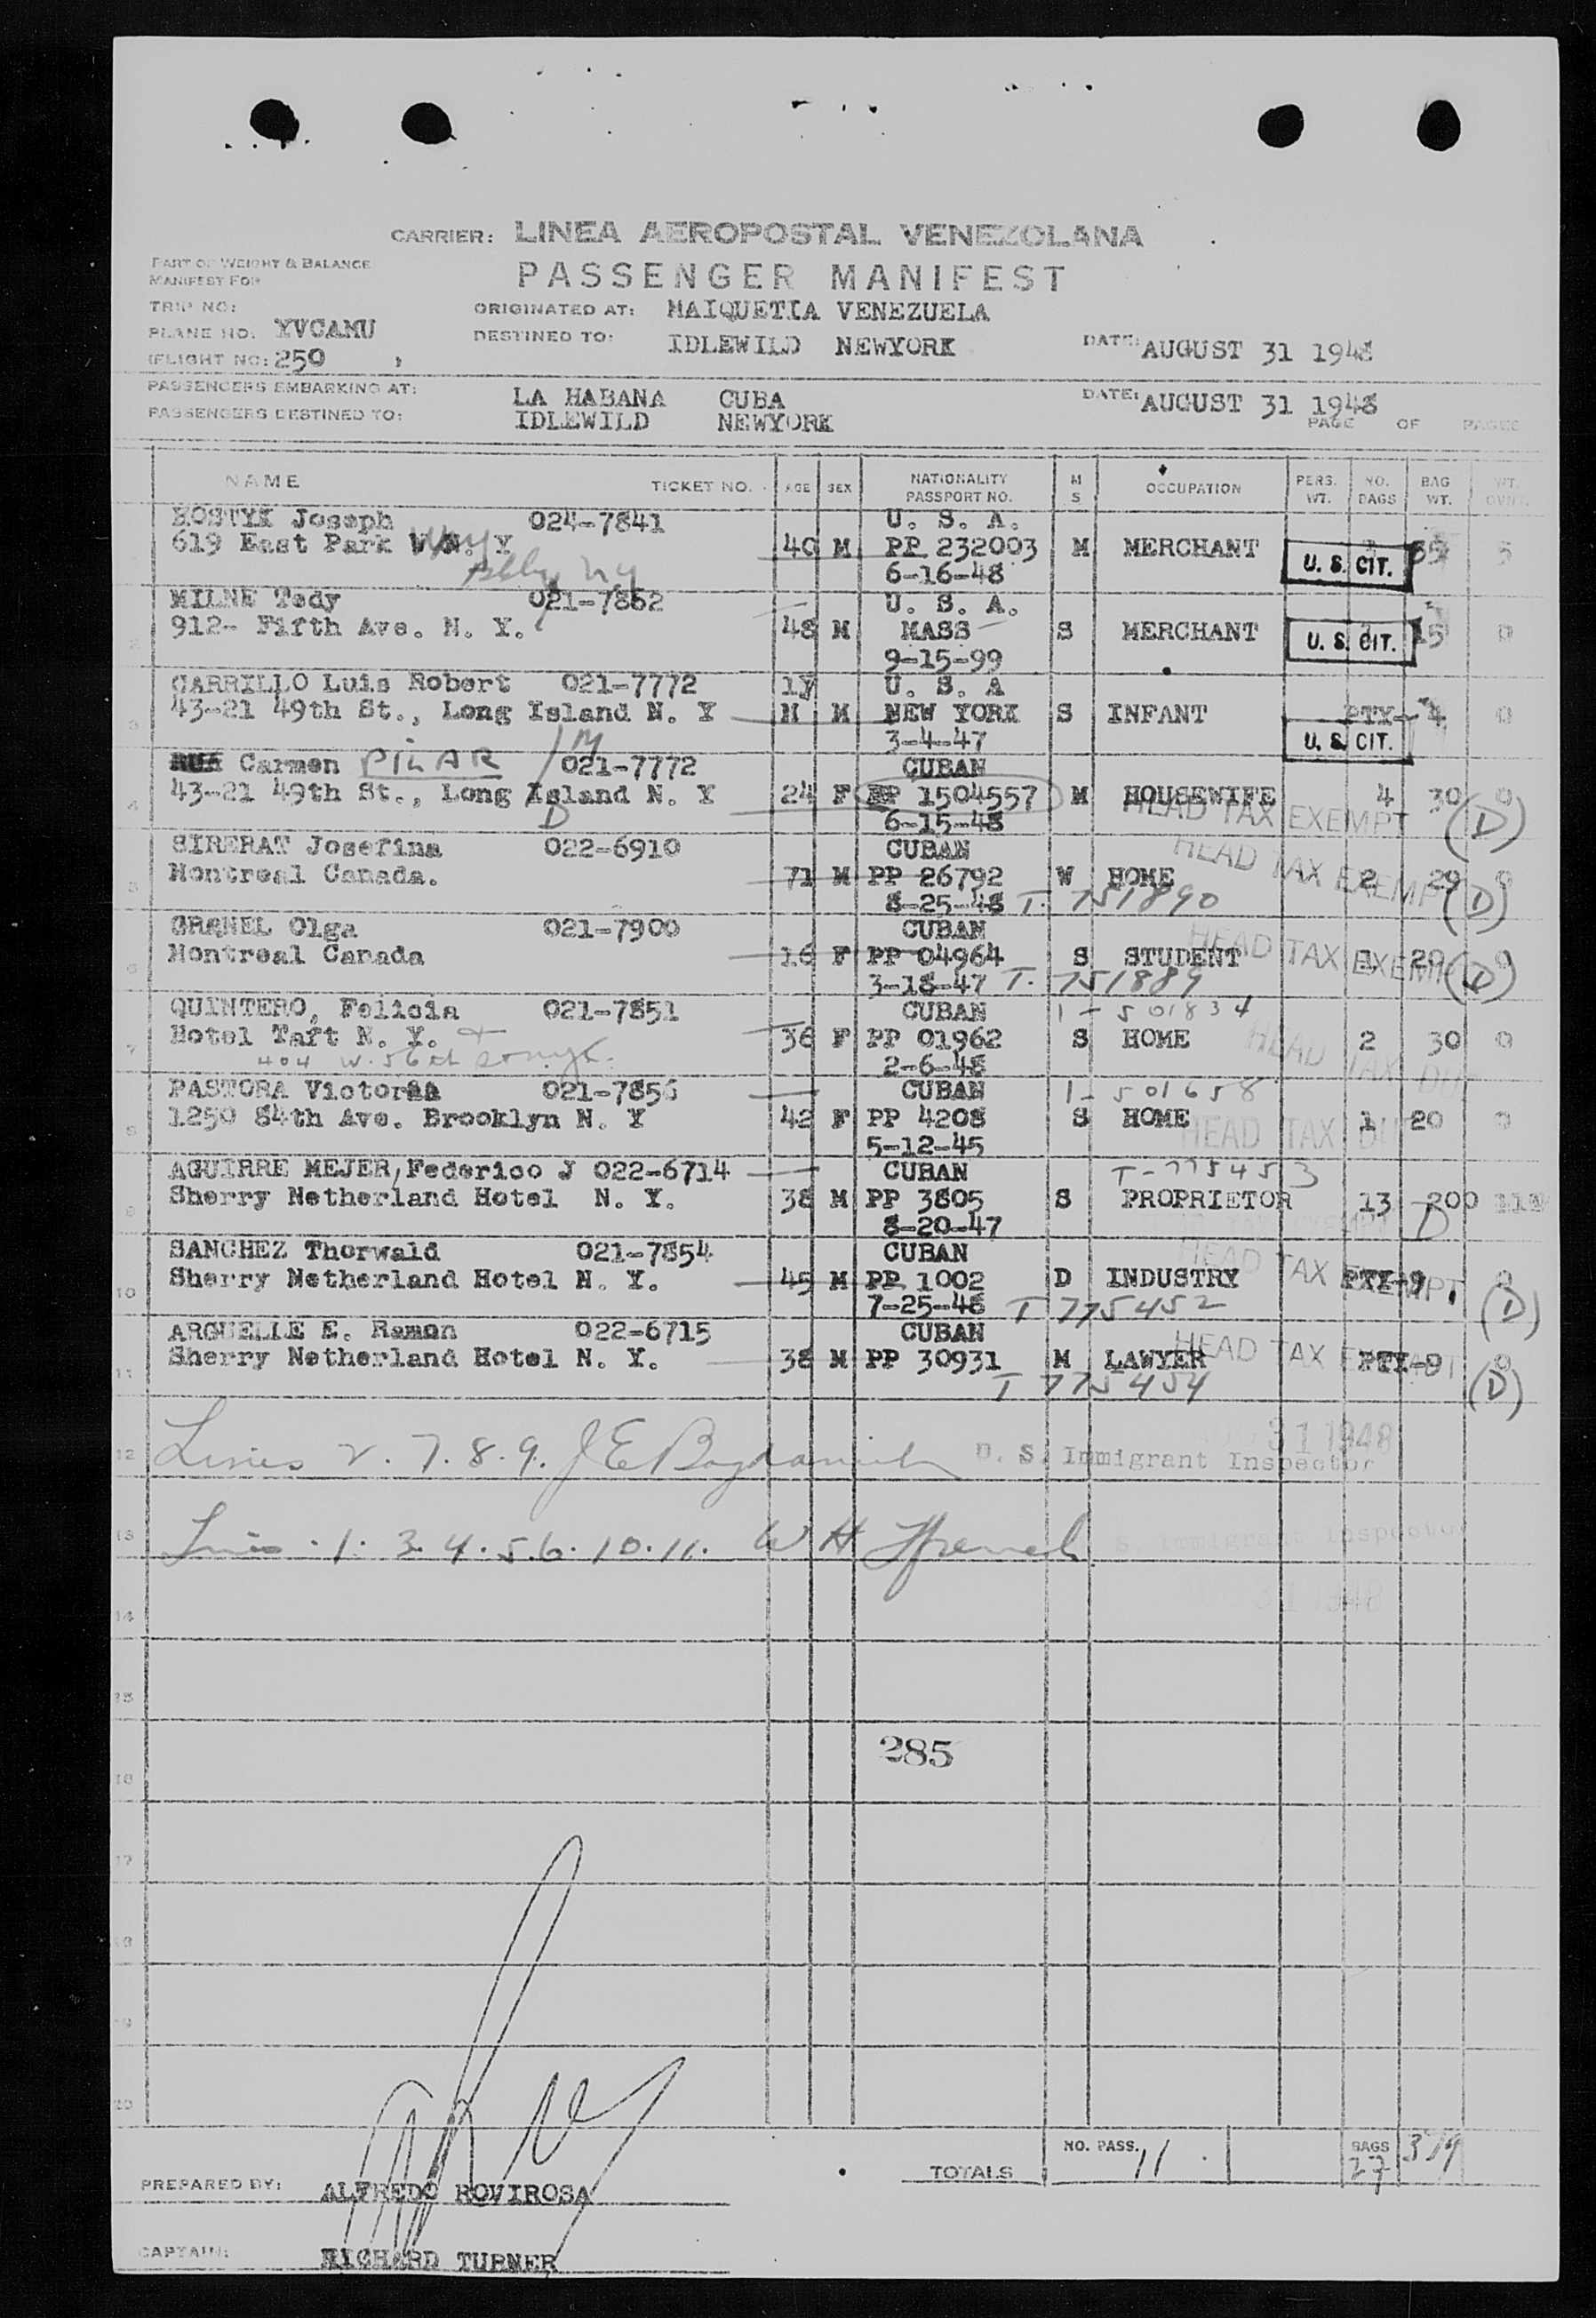 CARRIER: LINEA AEROPOSTAL VENEZOLANA
PART OF WEIGHT & BALANCE
MANIFEST FOR
PASSENGER MANIFEST
TRIP NO:
ORIGINATED AT: MAIQUETIA VENEZUELA
PLANE NO. YVCAMU
DESTINED TO: IDLEWILD NEWYORK DATE: AUGUST 31 1948
FLIGHT NO: 250
PASSENGERS EMBARKING AT: LA HABANA CUBA DATE: AUGUST 31 1948
PASSENGERS DESTINED TO: IDLEWILD NEWYORK PAGE OF PAGES
NAME TICKET NO. AGE SEX NATIONALITY PASSPORT NO. M S OCCUPATION PERS. WT. NO. BAGS BAG WT. WT. OVWT.
Joseph 024-7841 U. S. A.
1 619 East Park N. Y 40 M PP 232003 M MERCHANT U. S. CIT. 55 5
6-16-48
MILNE Tedy 021-7852 U. S. A.
2 912- Fifth Ave. N. Y. 48 M MASS S MERCHANT U. S. CIT. 15 0
9-15-99
CARRILLO Luis Robert 021-7772 1y U. S. A
3 43-21 49th St., Long Island N. Y M M NEW YORK S INFANT PTY-4 0
3-4-47 U. S. CIT.
RUA Carmen PILAR 1M 021-7772 CUBAN
4 43-21 49th St., Long Island N. Y 24 F PP 1504557 M HOUSEWIFE 4 30 0
D 6-15-48 HEAD TAX EXEMPT (D)
SIRERAT Josefina 022-6910 CUBAN
5 Montreal Canada. 71 M PP 26792 W HOME 2 29 0
8-25-48 T. 751890 HEAD TAX EXEMPT (D)
GRANEL Olga 021-7900 CUBAN
6 Montreal Canada 16 F PP 04964 S STUDENT 1 20 0
3-18-47 T. 751889 HEAD TAX EXEMPT (D)
QUINTERO, Felicia 021-7851 CUBAN 1-501834
7 Hotel Taft N. Y. 36 F PP 01962 S HOME 2 30 0
404 W. 56th St. nyc. 2-6-48 HEAD TAX DUE
PASTORA Victoria 021-7856 CUBAN 1-501658
8 1250 84th Ave. Brooklyn N. Y 42 F PP 4208 S HOME 1 20 0
5-12-45 HEAD TAX DUE
AGUIRRE MEJER, Federico J 022-6714 CUBAN T-775453
9 Sherry Netherland Hotel N. Y. 38 M PP 3805 S PROPRIETOR 13 200
8-20-47 D
SANCHEZ Thorwald 021-7854 CUBAN
10 Sherry Netherland Hotel N. Y. 45 M PP 1002 D INDUSTRY PTY-9 0
7-25-48 T 775452 HEAD TAX EXEMPT (D)
ARGUELLE E. Ramon 022-6715 CUBAN
11 Sherry Netherland Hotel N. Y. 38 M PP 30931 M LAWYER PTY-9 0
T 775454 HEAD TAX EXEMPT (D)
12 Lines 2. 7. 8. 9. U. S. Immigrant Inspector
31 1948
13 Lines . 1. 3. 4. 5. 6. 10. 11. W H S. Immigrant Inspector
14 31 1948
15
285
16
17
18
19
20
TOTALS NO. PASS. 11 BAGS 27 319
PREPARED BY: ALFREDO ROVIROSA
CAPTAIN: RICHARD TURNER